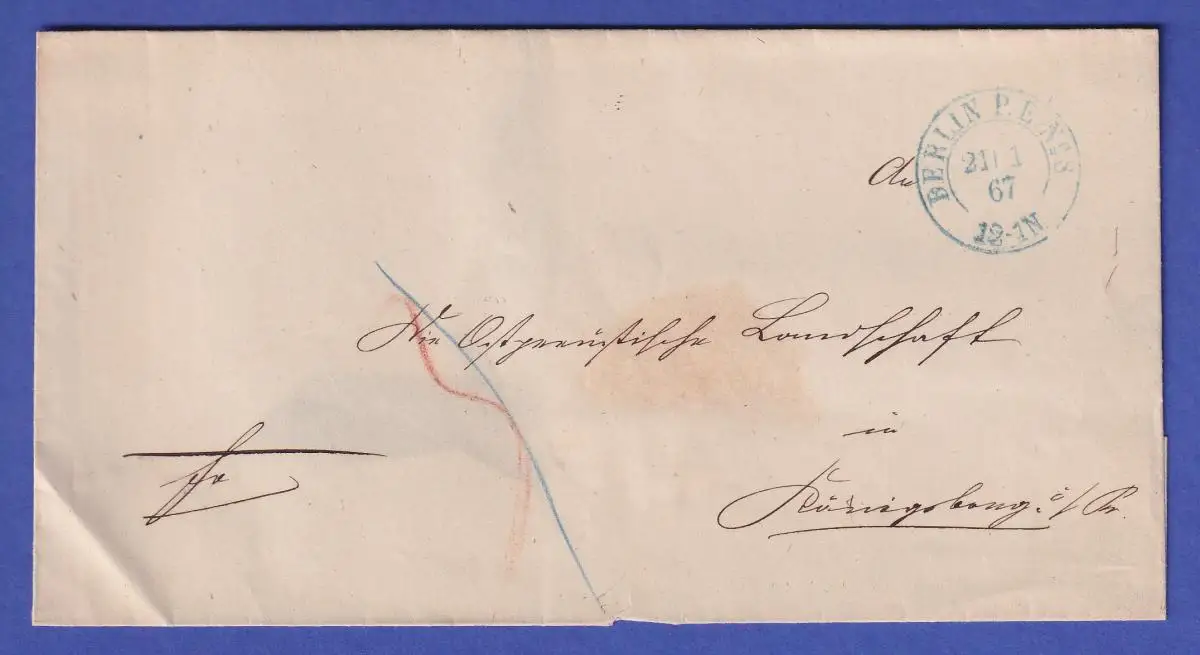 BERLIN P.E. No 8
21 1
67
12-1N
An
Die Ostpreußische Landschaft
in
Königsberg i/Pr.